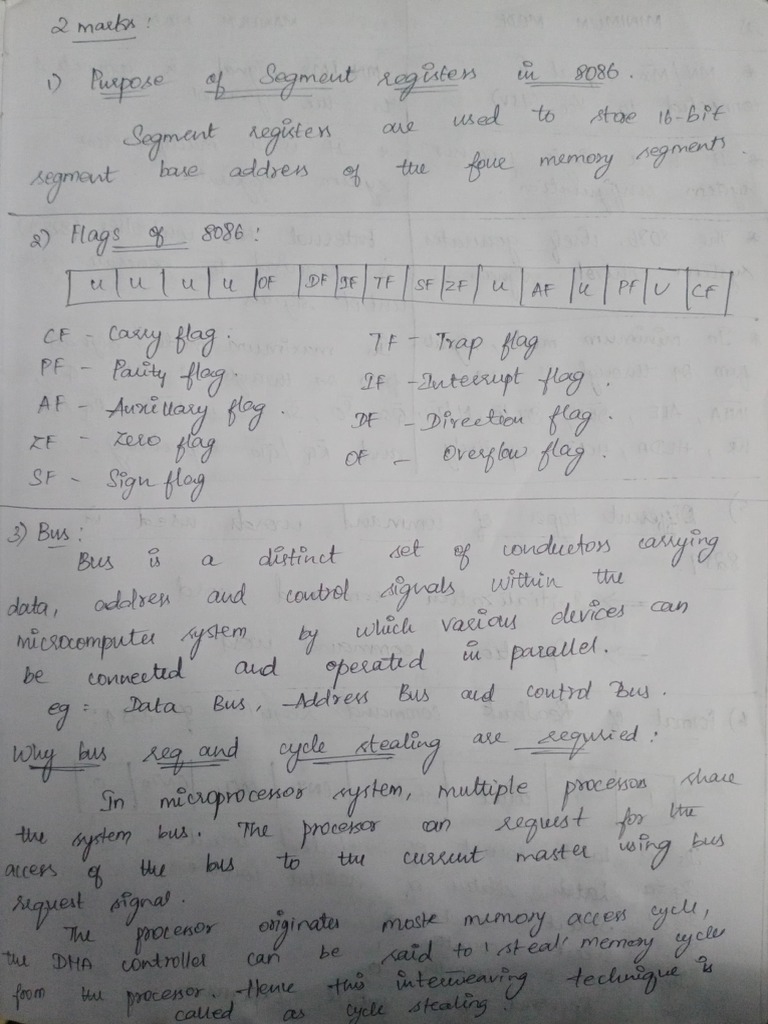 2 marks:
1) Purpose of Segment registers in 8086.
Segment registers are used to store 16-bit
segment base address of the four memory segments.
2) Flags of 8086:
U | U | U | U | OF | DF | IF | TF | SF | ZF | U | AF | U | PF | U | CF
CF - Carry flag. TF - Trap flag
PF - Parity flag. IF - Interrupt flag.
AF - Auxillary flag. DF - Direction flag.
ZF - Zero flag OF - Overflow flag.
SF - Sign flag
3) Bus:
Bus is a distinct set of conductors carrying
data, address and control signals within the
microcomputer system by which various devices can
be connected and operated in parallel.
eg: Data Bus, Address Bus and control Bus.
Why bus req and cycle stealing are requried:
In microprocessor system, multiple processors share
the system bus. The processor can request for the
access of the bus to the current master using bus
request signal.
The processor originates moste memory access cycle,
the DMA controller can be said to 'steal' memory cycle
from the processor. Hence this interweaving technique is
called as cycle stealing.